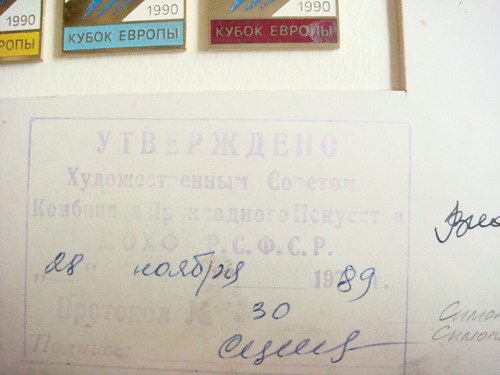 1990
1990
1990
РОПЫ
КУБОК ЕВРОПЫ
КУБОК ЕВРОПЫ
УТВЕРЖДЕНО
Художественным Советом
Комбината Прикладного Искусства
МОХФ Р.С.Ф.С.Р.
„28" ноября 1989 г.
Протокол № 30
Подпись:
Симон
Симон